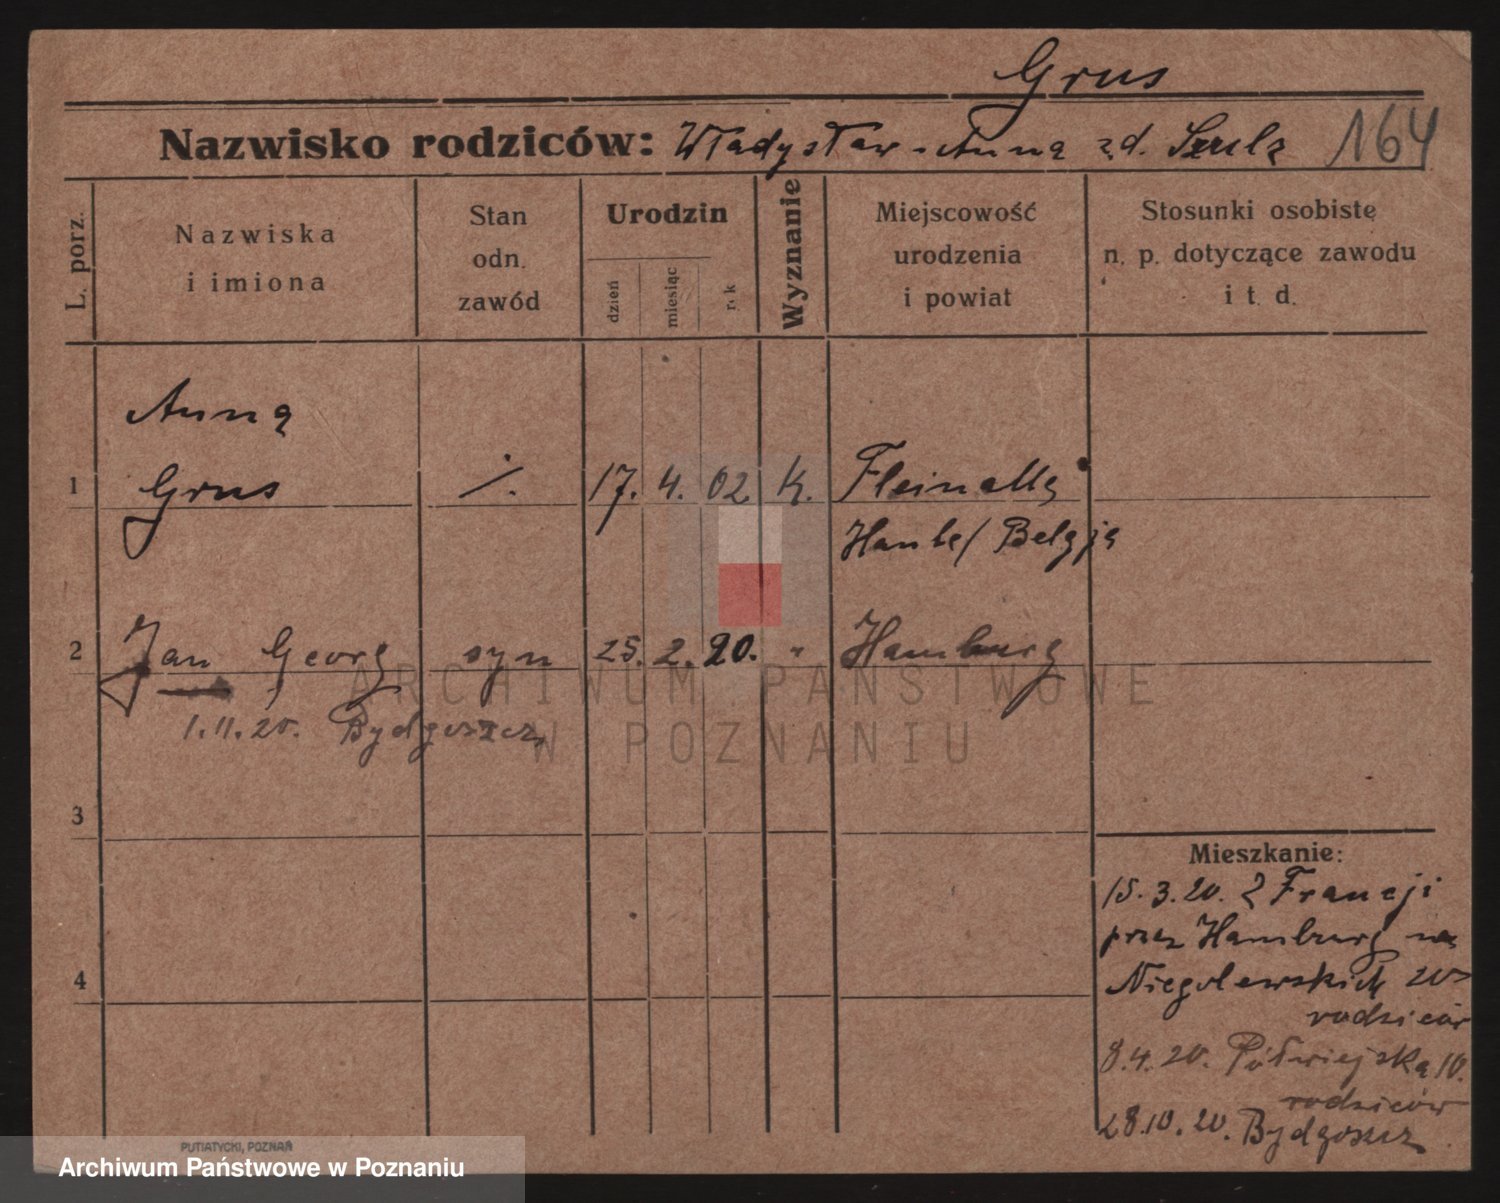 Grus
Nazwisko rodziców: Władysław - Anna zd. Szulz 164
L. porz.
Nazwiska
i imiona
Stan
odn.
zawód
Urodzin
dzień
miesiąc
rok
Wyznanie
Miejscowość
urodzenia
i powiat
Stosunki osobiste
n. p. dotyczące zawodu
i t. d.
Anna
1 Grus ./. 17. 4. 02 k.
Belgja
2 Jan Georg syn 25. 2. 20. " Hamburg
1.11.20. Bydgoszcz
3
Mieszkanie:
15.3.20. z Francji
przez Hamburg na
Niegolewskich 20
rodziców
4
8.4.20. Półwiejska 10.
rodziców
28.10.20. Bydgoszcz
PUTIATYCKI, POZNAŃ
ARCHIWUM PAŃSTWOWE
W POZNANIU
Archiwum Państwowe w Poznaniu